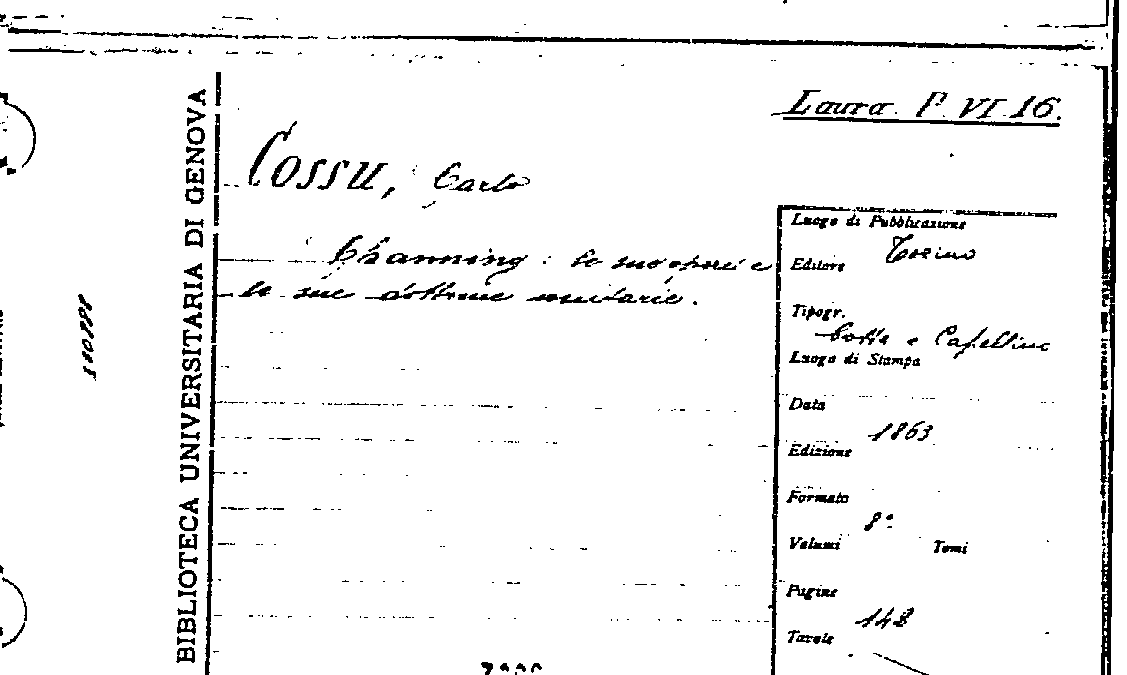 Laura. P. VI. 16.
BIBLIOTECA UNIVERSITARIA DI GENOVA
Cossu, Carlo
Channing: le sue opere e
le sue dottrine unitarie.
Luogo di Pubblicazione
Torino
Editore
Tipogr.
Cotta e Capellino
Luogo di Stampa
Data
1863
Edizione
Formato
8°
Volumi Tomi
Pagine
148
Tavole